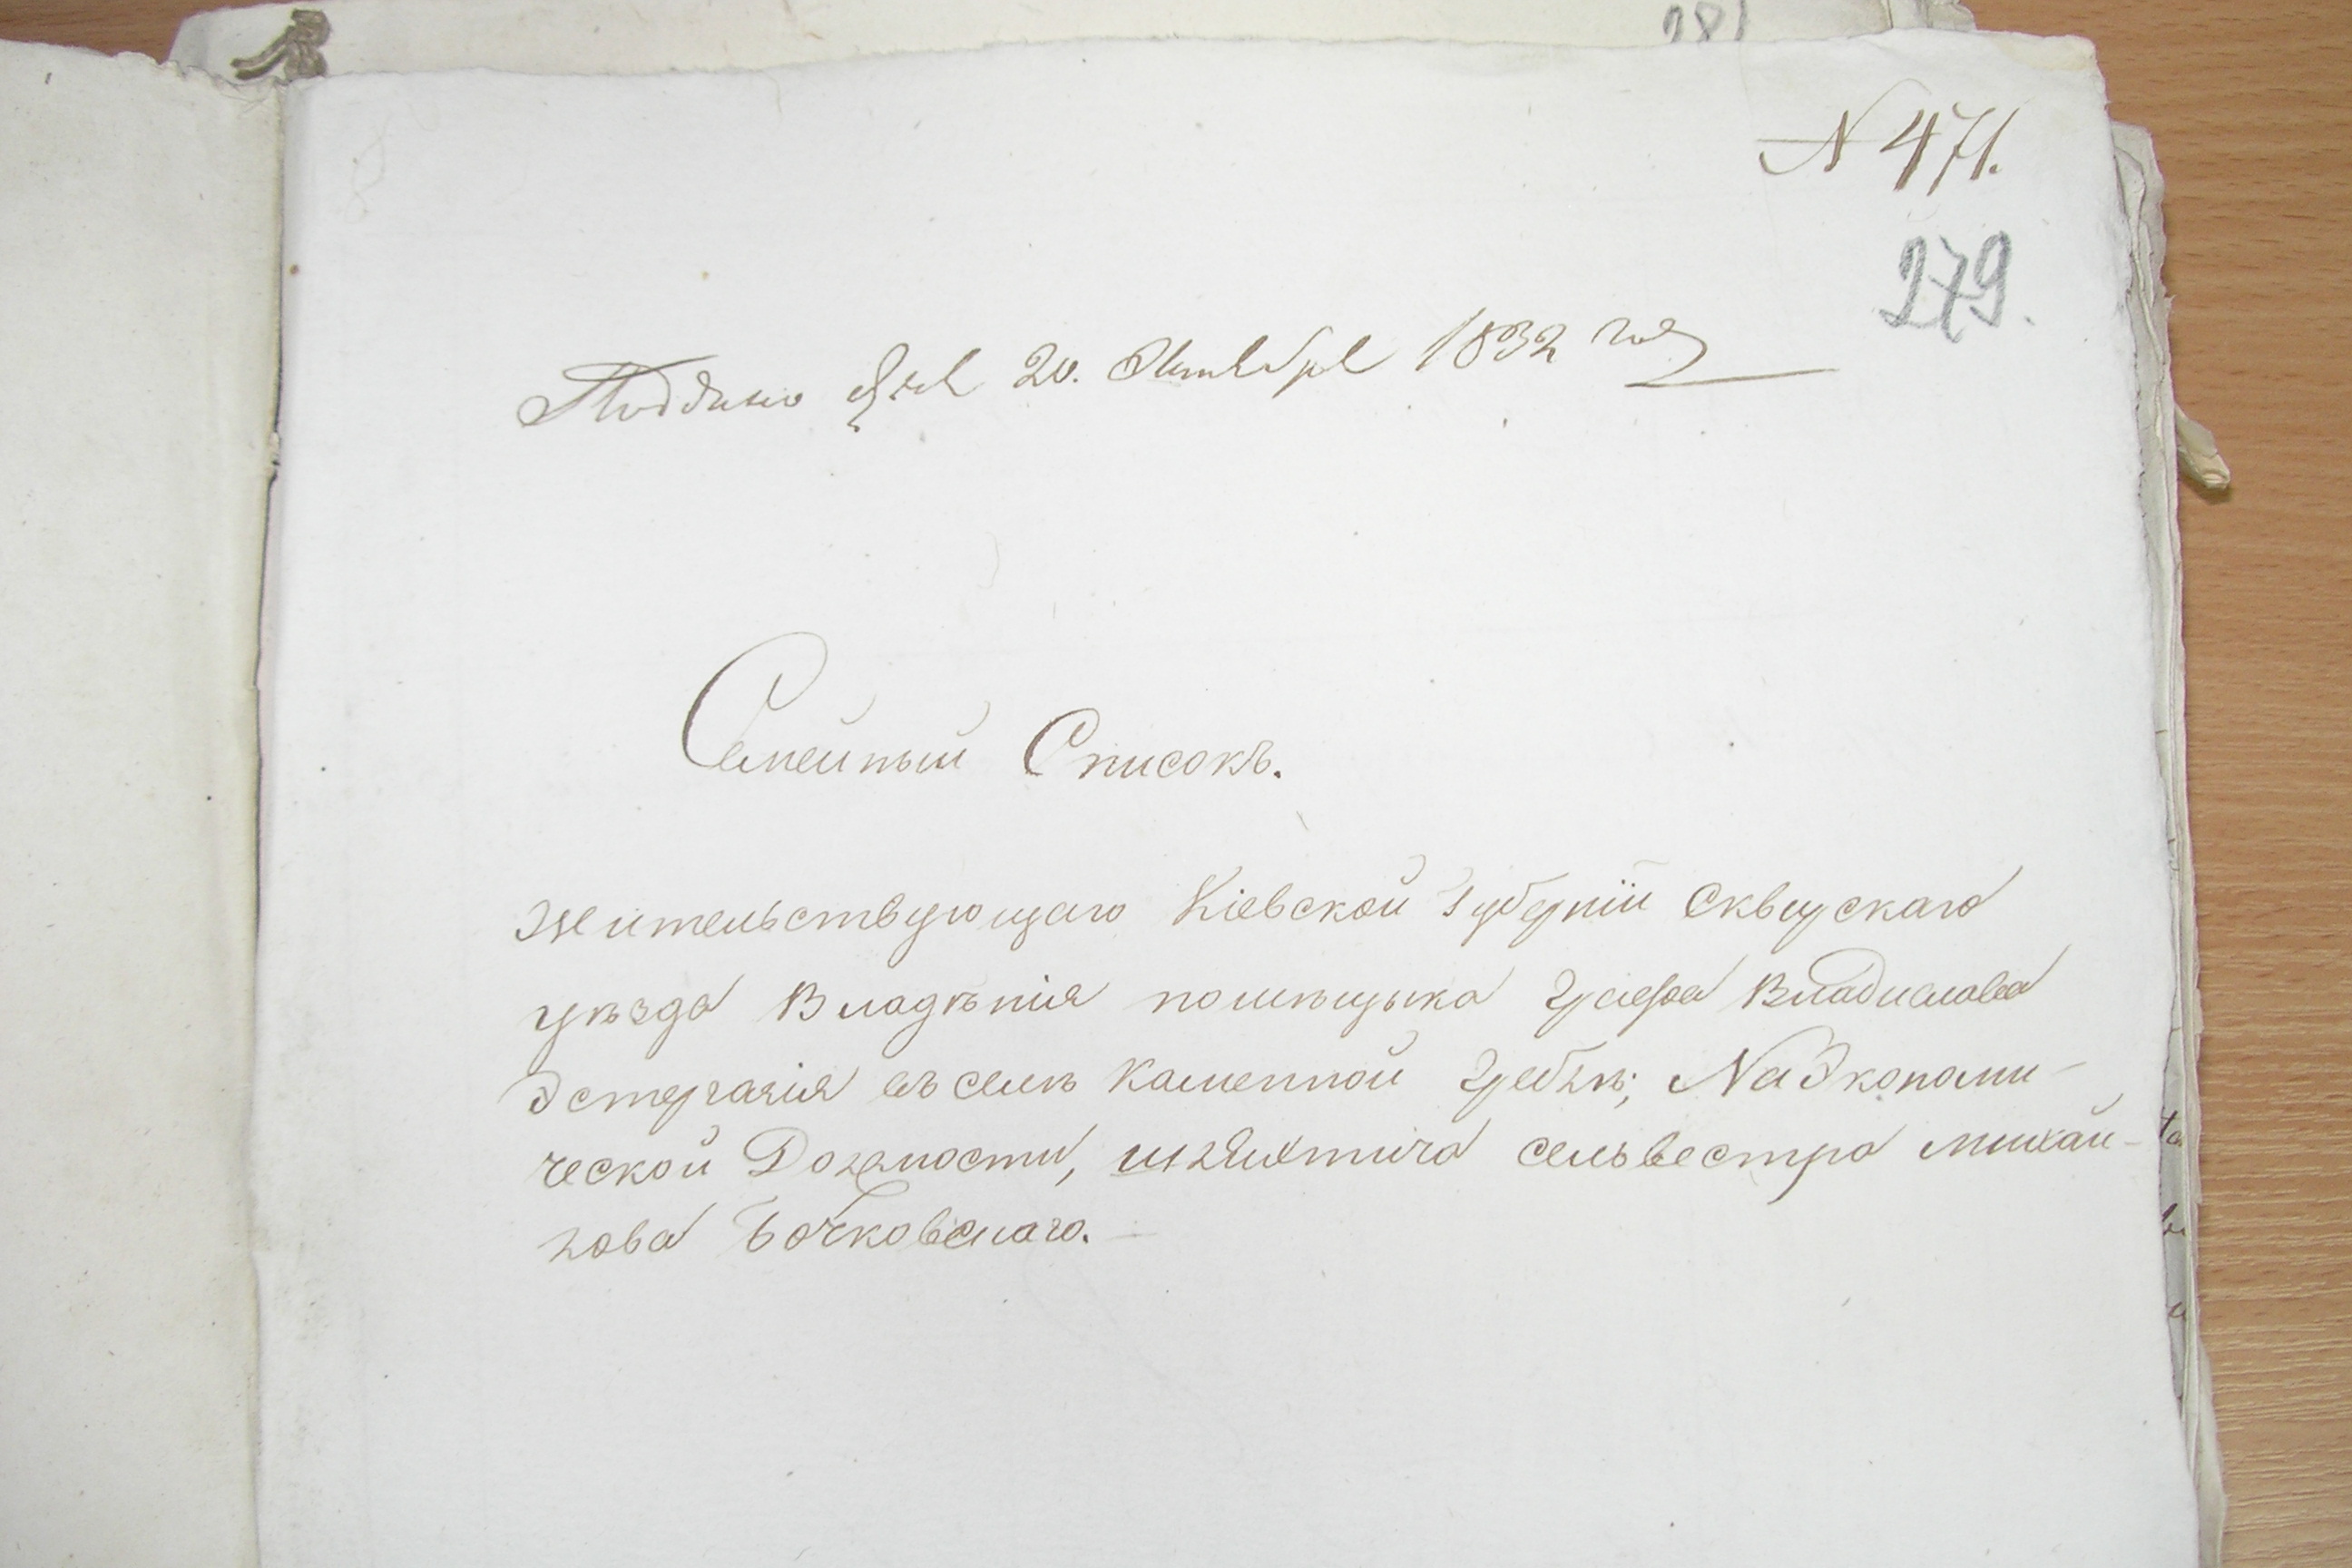 281
N 471.
279.
Поддано 20. Октября 1832 года
Семейный Списокъ.
Жительствующаго Кіевской Губерніи Сквирскаго
уѣзда Владѣнія помѣщыка Графа Владислава
въ селѣ Каменной Гребли; На Экономи-
ческой Должности, шляхтича Сельвестра Михай-
лова Бочковскаго.